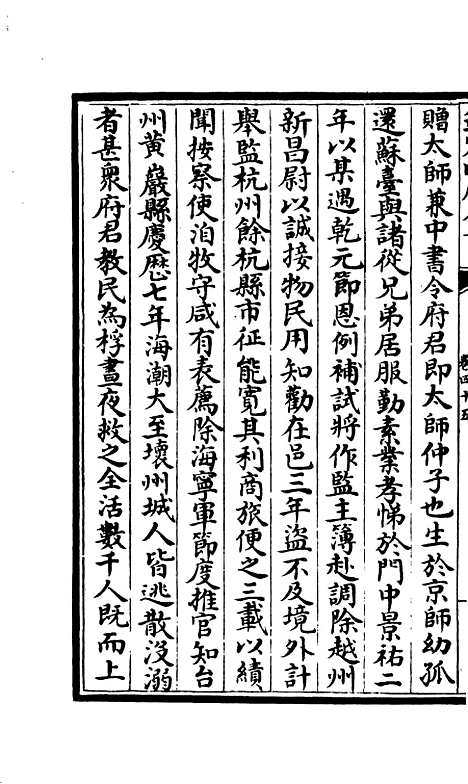 贈太師兼中書令府君即太師仲子也生於京師幼孤
還蘇臺與諸從兄弟居服勤素業孝悌於門中景祐二
年以某遇乾元節恩例補試將作監主簿赴調除越州
新昌尉以誠接物民用知勸在邑三年盜不及境外計
舉監杭州餘杭縣市征能寛其利商旅便之三載以績
聞按察使洎牧守咸有表薦除海寧軍節度推官知台
州黄巖縣慶歷七年海潮大至壞州城人皆逃散没溺
者甚衆府君教民為桴晝夜救之全活數千人既而上